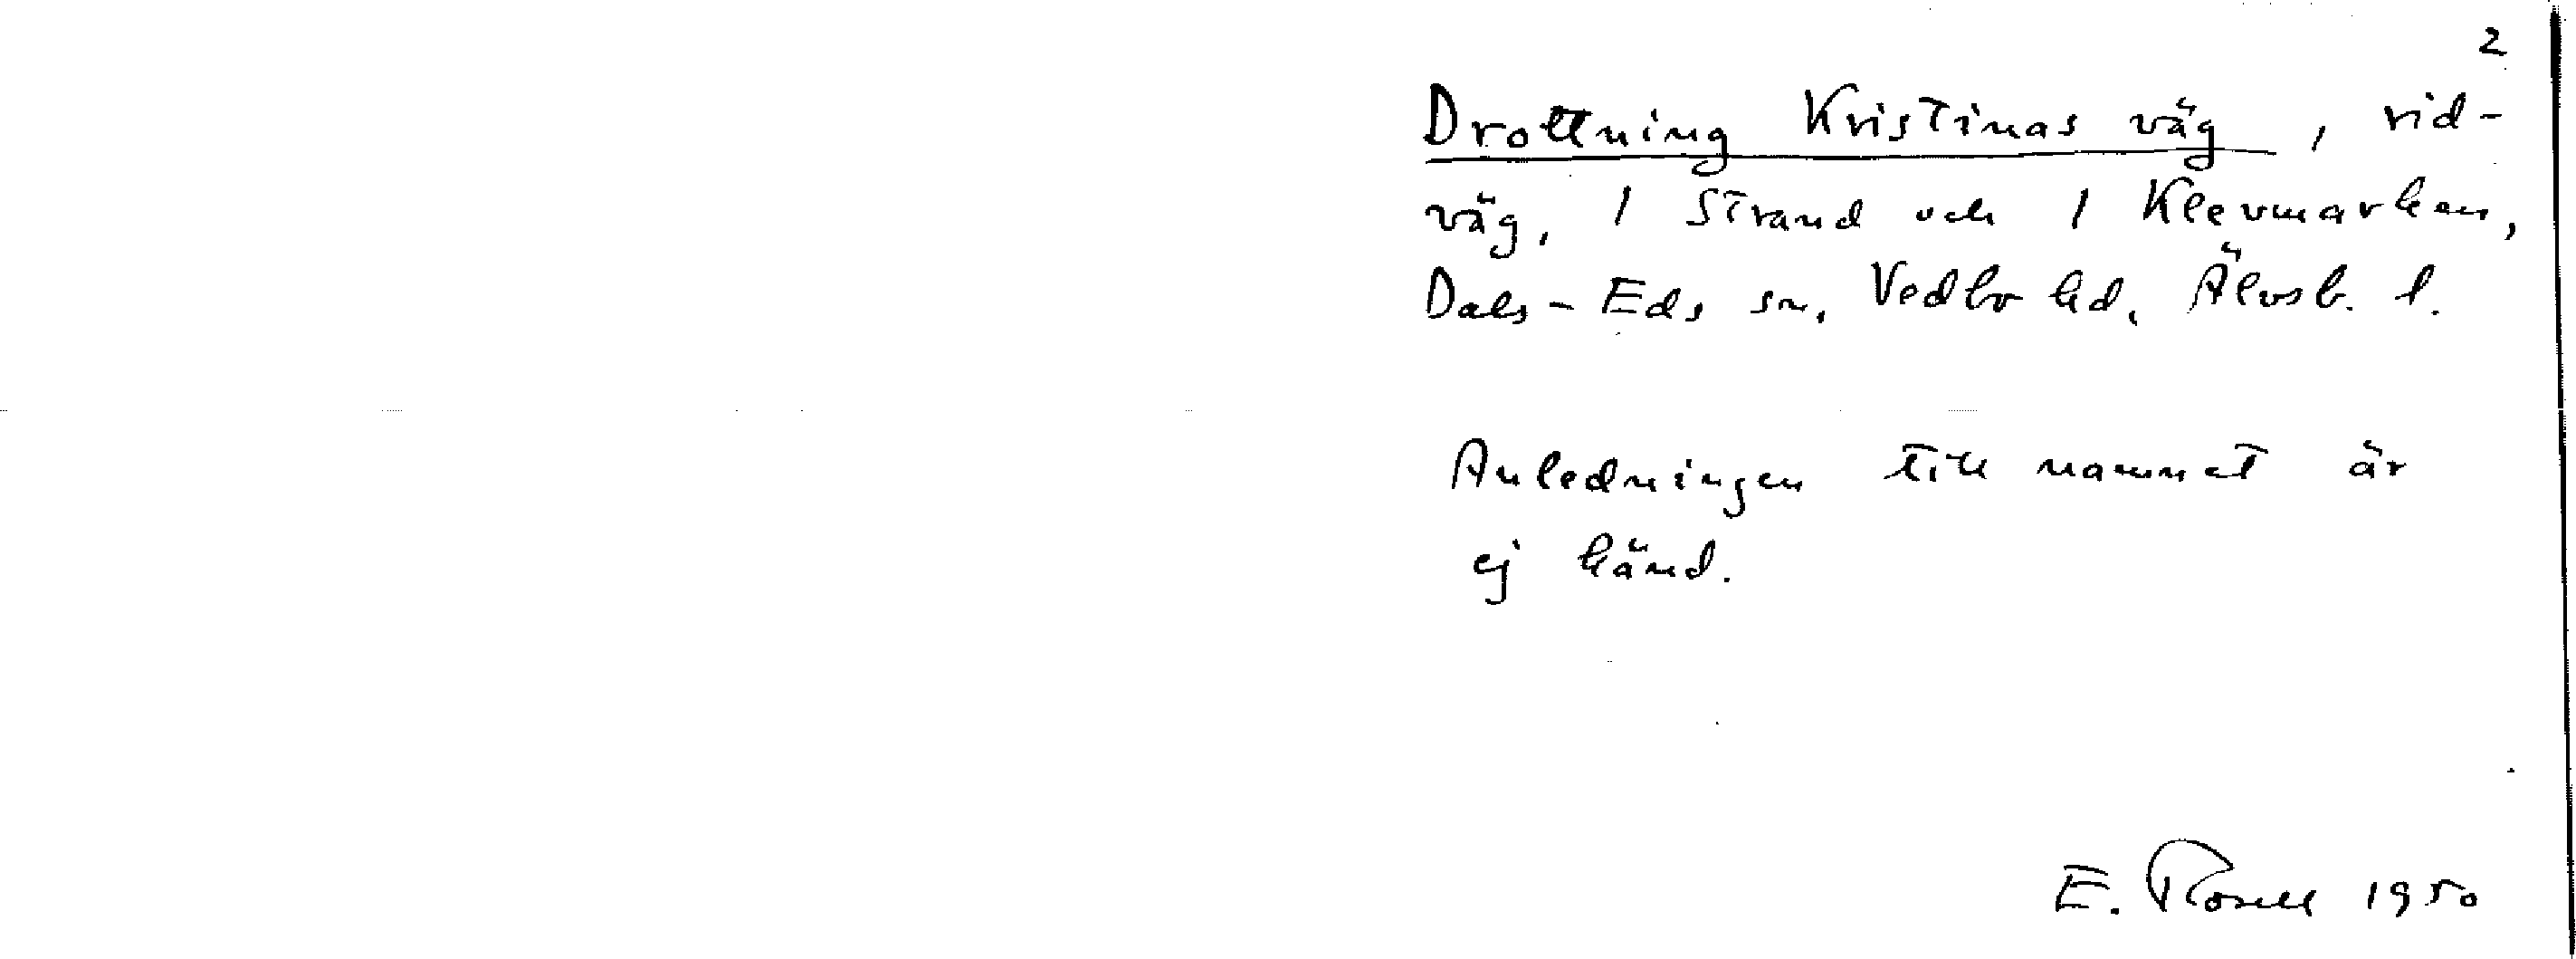 2
Drottning Kristinas väg, rid-
väg, 1 Strand och 1 Klevmarken,
Dals-Eds sn, Vedbo hd, Älvsb. l.
Anledningen till namnet är
ej känd.
E. Rosell 1950